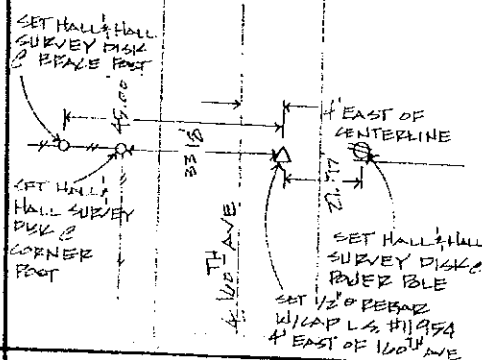 SET HALL & HALL
SURVEY DISK
@ BRACE POST
45.00
33.15
4' EAST OF
CENTERLINE
SET HALL &
HALL SURVEY
DISK @
CORNER
POST
160TH AVE
SET HALL & HALL
SURVEY DISK @
POWER POLE
SET 1/2" Ø REBAR
W/CAP L.S. #11954
4' EAST OF 160TH AVE